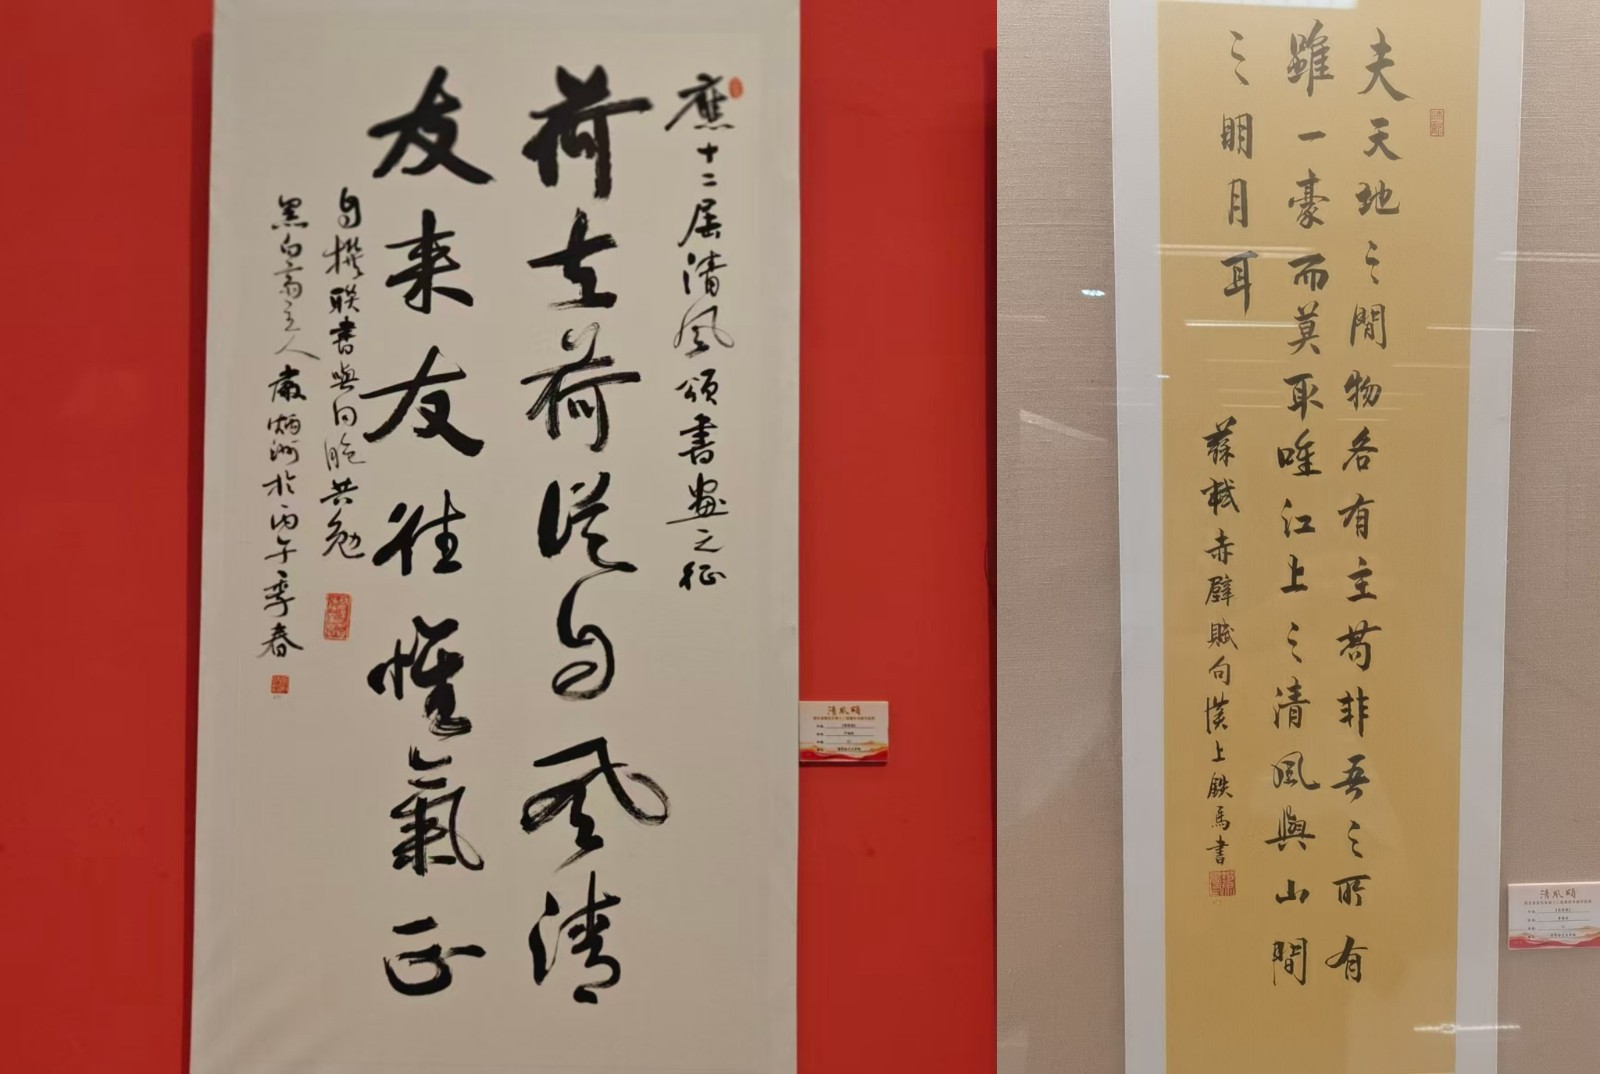 應十二届清風頌書畫之征
荷去荷從自風清
友来友往惟氣正
自撰聯書與同胞共勉
黑白齋主人嚴炳洲於丙午季春
清风颂
夫天地之間物各有主苟非吾之所有
雖一豪而莫取唯江上之清風與山間
之明月耳
蘇軾赤壁賦句漢上鉄馬書
清风颂